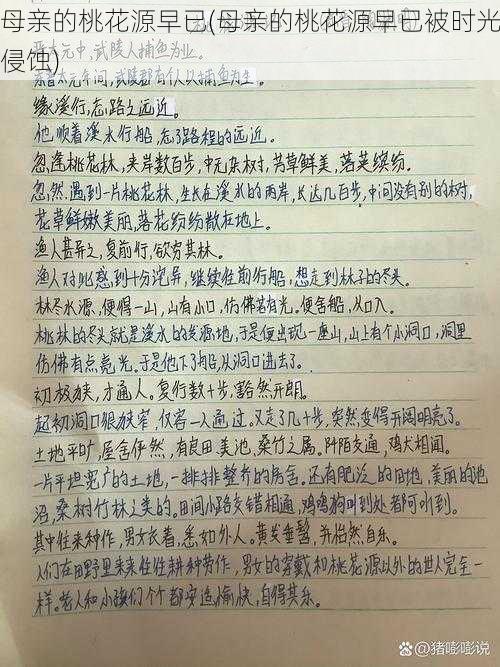 母亲的桃花源早已(母亲的桃花源早已被时光
侵蚀)
太元中,武陵人捕鱼为业。
东晋太元年间,武陵郡有个人以捕鱼为生。
缘溪行,忘路之远近。
他顺着溪水行船,忘了路程的远近。
忽逢桃花林,夹岸数百步,中无杂树,芳草鲜美,落英缤纷。
忽然遇到一片桃花林,生长在溪水的两岸,长达几百步,中间没有别的树,
花草鲜嫩美丽,落花纷纷散在地上。
渔人甚异之,复前行,欲穷其林。
渔人对此感到十分诧异,继续往前行船,想走到林子的尽头。
林尽水源,便得一山,山有小口,仿佛若有光。便舍船,从口入。
桃林的尽头就是溪水的发源地,于是便出现一座山,山上有个小洞口,洞里
仿佛有点亮光。于是他下了船,从洞口进去了。
初极狭,才通人。复行数十步,豁然开朗。
起初洞口很狭窄,仅容一人通过。又走了几十步,突然变得开阔明亮了。
土地平旷,屋舍俨然,有良田美池,桑竹之属。阡陌交通,鸡犬相闻。
一片平坦宽广的土地,一排排整齐的房舍。还有肥沃的田地,美丽的池
沼,桑树竹林之类的。田间小路交错相通,鸡鸣狗叫到处都可听到。
其中往来种作,男女衣着,悉如外人。黄发垂髫,并怡然自乐。
人们在田野里来来往往耕种劳作,男女的穿戴和桃花源以外的世人完全一
样。老人和小孩们个个都安适愉快,自得其乐。
@猪嘭嘭说